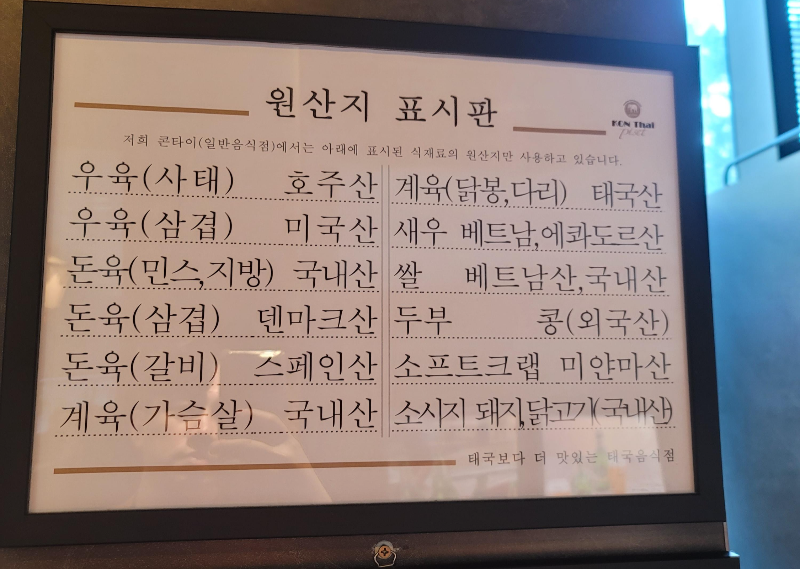 원산지 표시판
KON Thai
저희 콘타이(일반음식점)에서는 아래에 표시된 식재료의 원산지만 사용하고 있습니다.
우육(사태) 호주산
우육(삼겹) 미국산
돈육(민스,지방) 국내산
돈육(삼겹) 덴마크산
돈육(갈비) 스페인산
계육(가슴살) 국내산
계육(닭봉,다리) 태국산
새우 베트남,에콰도르산
쌀 베트남산,국내산
두부 콩(외국산)
소프트크랩 미얀마산
소시지 돼지,닭고기(국내산)
태국보다 더 맛있는 태국음식점